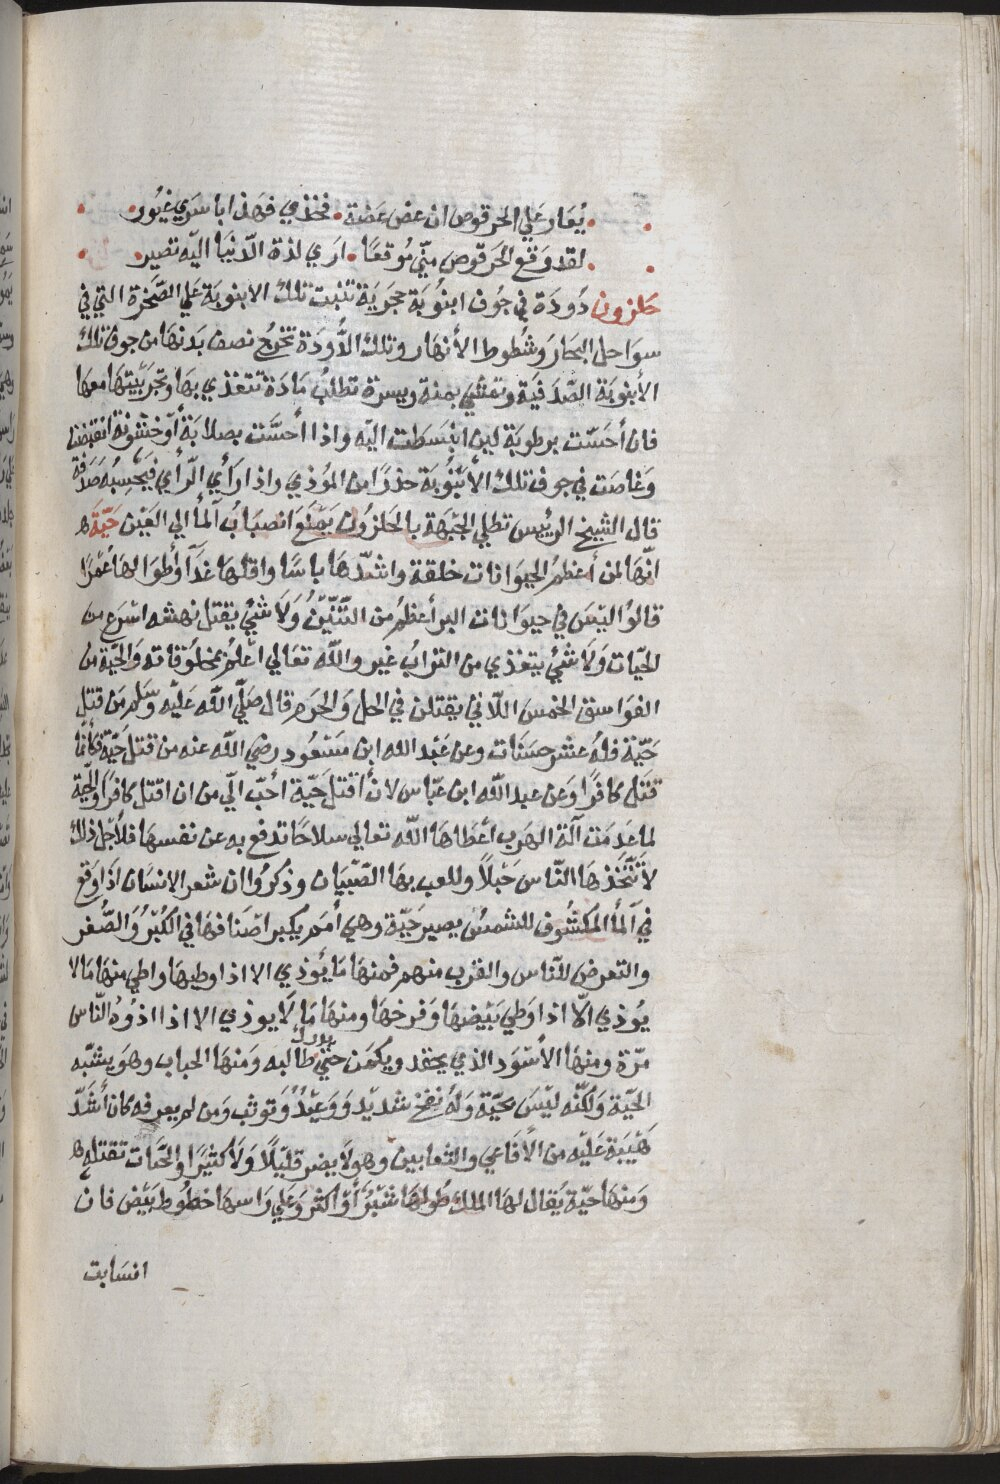 يُغار علي الحرقوص ان عض عضة . فخذي فهذا ابا سري غيور .
لقد وقع الحرقوص منّي مُوقعًا . اري لذة الدّنيا اليه تصير .
حلزون دودَة في جوُف انبوُبَة حجريَة تنبت تلك الانبوبَة علي الصّخرة التيّ في
سواحل البحار وشُطوط الأنهار وتلك الدُّودَة تخرُج نصف بدنهَا من جوف تلك
الأنبوبَة الصّدفيَة وتمشي يمنة ويسرة تطلُب مادَة تتغذي بها وتجر بَيتهَا معهَا
فان أحسّت برطوبَة لين انبَسطت اليَه واذا أحسّت بصلابَة أو خشونة انقبضت
وغاصَت في جوف تلك الأنبُوبَة حذرًا من المؤذي واذا رَأي الرّأي فيَحسِبُه صَدَفة
قال الشيخ الريُس تطلي الجَبهَة بالحلزون يَمنَع انصبابُ ألمأ الي العَين حيّة ه
انّهَا لمن أعظم الحيوَانات خلقة واشدّها باسًا واقلها غدًا وأطوَالهَا عُمرًا
قالوُا ليَس في حيوَانات البر أعظمُ من التّنّين وَلَا شيُ يقتل نهشه اسرَع من
الحيّات وَلَا شيُ يتغذي من التراب غير والله تعالي اعلم بمخلوُقاته وَالحيَّة من
الفوَاسق الخمسَ اللّاتي يقتلن في الحل والحرَم قال صَلّي اللّه عَليه وسَلم مَن قتل
حَيّة فلهُ عشر حسَنات وعن عَبْد اللّه ابن مَسعُود رضيَ اللّه عنه من قتل حَيّة فكأنما
قتل كافرًا وَعَن عبد اللّه ابن عَبّاس لان أقتل حَيّة أحَبّ اليّ من ان اقتل كافرًا والحيّة
لما عَدمَت آلة الهرَب اعطاهَا اللّه تعالي سلاحًا تدفع به عن نفسهَا فلأجل ذلك
لَا تتّخذهَا النّاس حَبلاً وللعب بهَا الصّبيان وذكرُوا ان شعر الانسَان اذا وَقع
في ألمأ المَكشُوف للشمسُ يصير حَيّة وهي أمَم يكبر اصَنافهَا في الكُبْرُ وَالصُّغر
والتعرض للنّاس والقرب منهم فمنهَا مَا يُوذي الا اذا وطيهَا واطي منها مَا لا
يُوذي الاّ اذا وَطي بَيضهَا وَفرخهَا ومنهَا مَا لَا يوذي الا اذا اذوُه النّاس
مَرّة ومنهَا الأسوَد الذي يحقد ويكمَن حَتيّ يدرك طالبه وَمنهَا الحباب وهوَ يشبّه
الحيّة وَلكنّه ليَسَ بحيّة وَلهُ نفخ شديد وَوَعيْدُ وَتوثب وَمن لم يعرفه كان أشدّ
هَيْبَة عَليَه من الأفاعي والثعابين وهو لا يضر قليلًا وَلَا كثيرًا والحَيّات تقتله ه
وَمنهَا حيّة يُقال لهَا الملك طُولهَا شبْرُ أوْ اكثر وَعَلي رَاسهَا خطُوط بَيَض فان
انسَابت